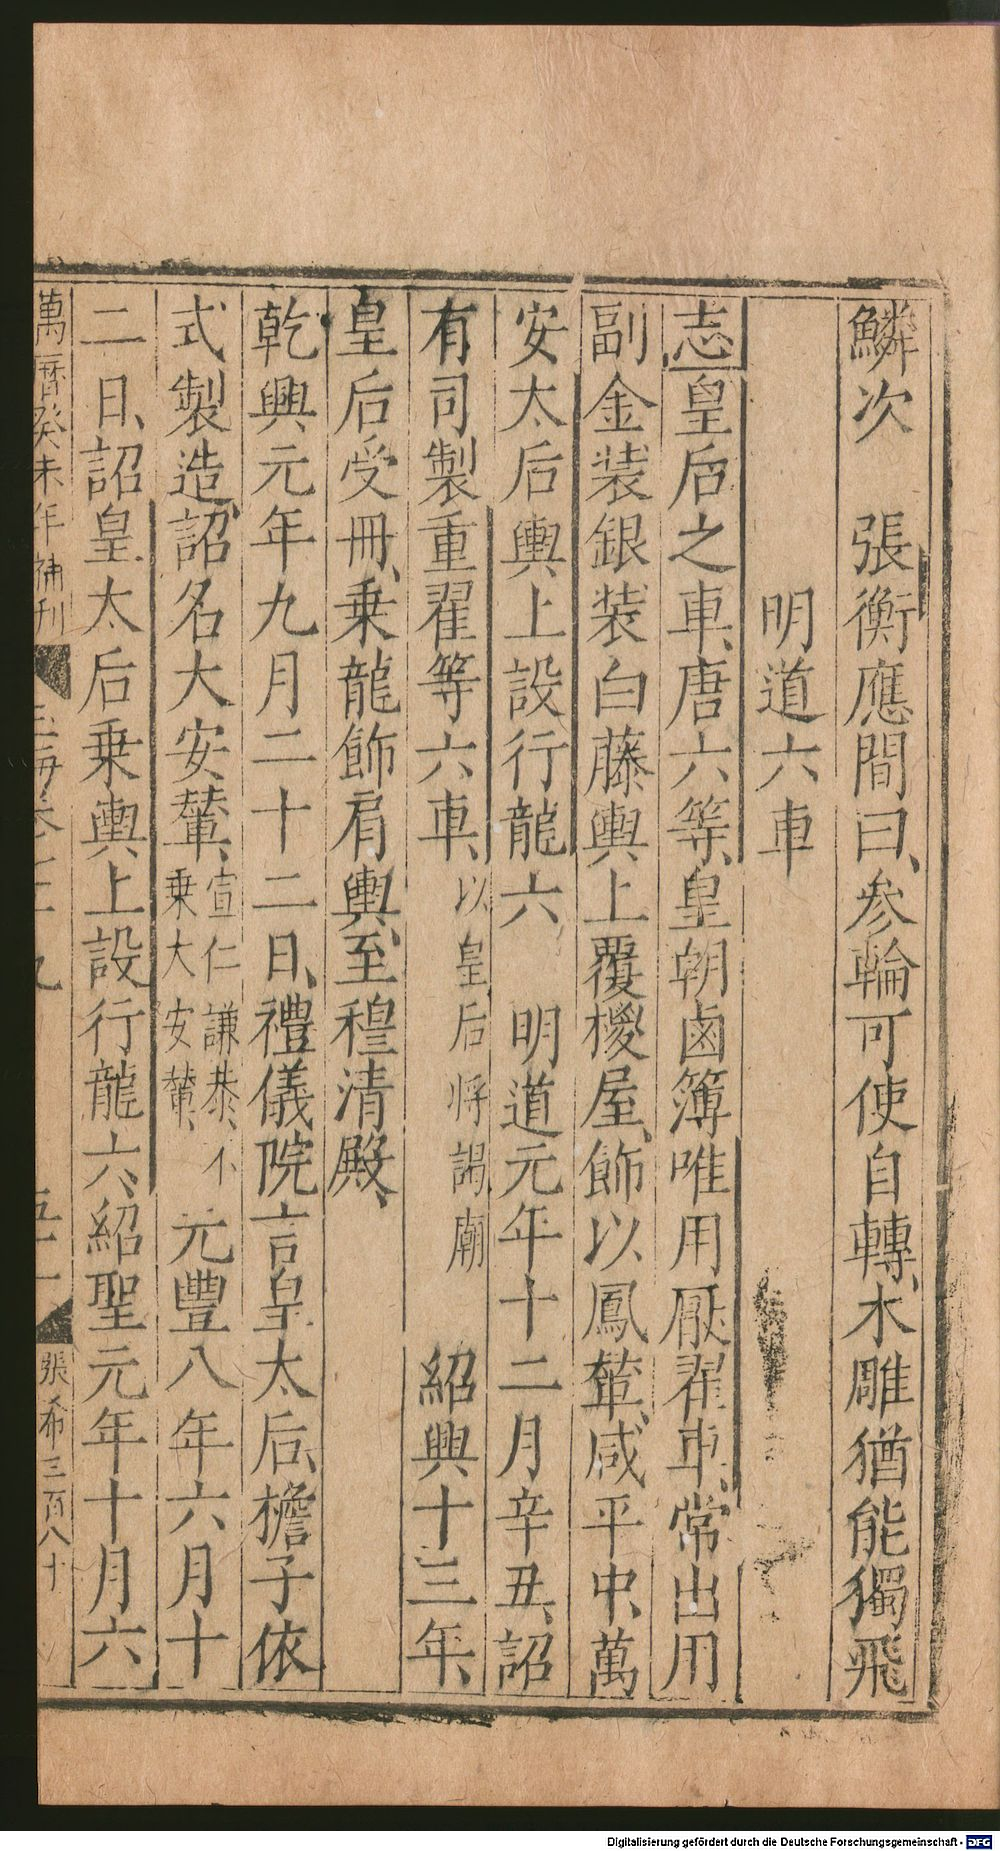 鱗次　張衡應閒曰參輪可使自轉木雕猶能獨飛
明道六車
志皇后之車唐六等皇朝鹵簿唯用厭翟車常出用
副金装銀装白藤輿上覆椶屋飾以鳳輦咸平中萬
安太后輿上設行龍六　明道元年十二月辛丑詔
有司製重翟等六車以皇后将謁廟　紹興十三年
皇后受冊乗龍飾肩輿至穆清殿
乾興元年九月二十二日禮儀院言皇太后檐子依
式製造詔名大安輦宣仁謙恭不乗大安輦　元豐八年六月十
二日詔皇太后乗輿上設行龍六紹聖元年十月六
萬曆癸未年補刊　玉海卷七十九　張希三百八十
Digitalisierung gefördert durch die Deutsche Forschungsgemeinschaft - DFG